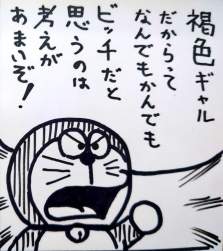 褐色ギャル
だからって
なんでもかんでも
ビッチだと
思うのは
考えが
あまいぞ!